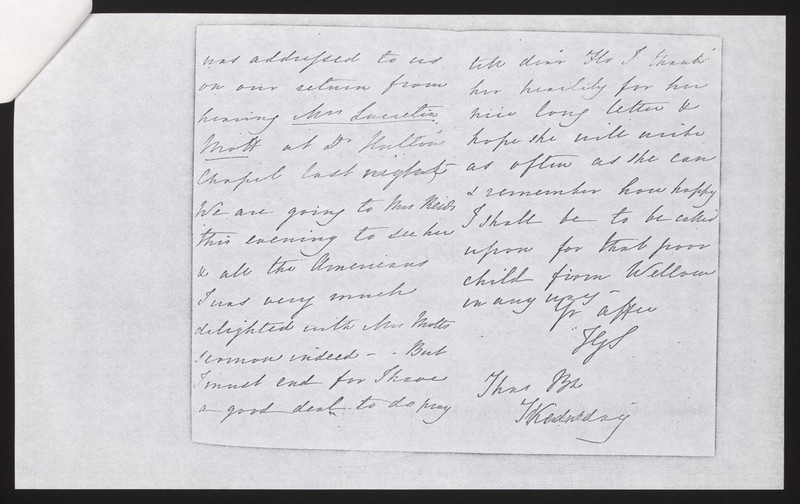 was addressed to us
on our return from
hearing Mrs Lucretia
Mott at Dr Hutton's
Chapel last night
We are going to Mrs Reids
this evening to see her
& all the Americans
I was very much
delighted with Mrs Motts
sermon indeed - . But
I must end for I have
a good deal to do pray
tell dear Flo I thank
her heartily for her
nice long letter &
hope she will write
as often as she can
& remember how happy
I shall be to be called
upon for that poor
child from Wellow
in any way -
Yr affec
JGS
Thas
Wednesday